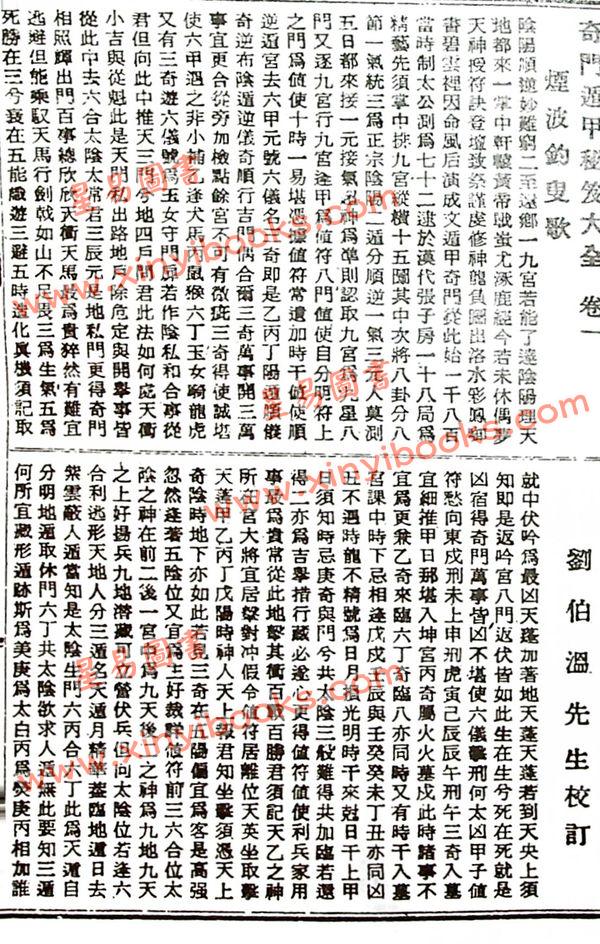 奇門遁甲秘笈大全 卷一
煙波釣叟歌
劉伯溫先生校訂
陰陽順逆妙難窮二至還鄉一九宮若能了達陰陽理天
地都來一掌中軒轅黃帝戰蚩尤涿鹿經今若未休偶夢
天神授符訣登壇致祭謹虔修神龍負圖出洛水彩鳳啣
書碧雲裡因命風后演成文遁甲奇門從此始一千八百
當時制太公測爲七十二逮於漢代張子房一十八局爲
精藝先須掌中排九宮縱橫十五圖其中次將八卦分八
節一氣統三爲正宗陰陽二遁分順逆一氣三元人莫測
五日都來接一元接氣超神爲準則認取九宮爲九星八
門又逐九宮行九宮逢甲爲值符八門值使自分明符上
之門爲值使十時一易堪憑據值符常遣加時干值使順
逆遁宮去六甲元號六儀名三奇即是乙丙丁陽遁順儀
奇逆布陰遁逆儀奇順行吉門偶合爾三奇萬事開三萬
事宜更合從旁加檢點餘宮不可有微疵三奇得使誠堪
使六甲遇之非小補逢犬馬丙鼠猴六丁玉女騎龍虎
又有三奇遊六儀號爲玉女守門扉若作陰私和合事從
君但向此中推天三門兮地四戶問君此法如何處天衝
小吉與從魁此是天門私出路地戶除危定與開舉事皆
從此中去六合太陰太常君三辰元是地私門更得奇門
相照耀出門百事總欣欣天衝天馬最爲貴猝然有難宜
逃避但能乘馭天馬行劍戟如山不足畏三爲生氣五爲
死勝在三兮衰在五能識遊三避五時造化眞機須記取
就中伏吟爲最凶天蓬加著地天蓬天蓬若到天央上須
知即是返吟宮八門返伏皆如此生在生兮死在死就是
凶宿得奇門萬事皆凶不堪使六儀擊刑何太凶甲子值
符愁向東戌刑未上申刑虎寅己辰辰午刑午三奇入墓
宜細推甲日那堪入坤宮丙奇屬火火墓戌此時諸事不
宜爲更兼乙奇來臨六丁奇臨八亦同時又有時干入墓
宮課中時下忌相逢戊戌壬辰與壬癸癸未丁丑亦同凶
五不遇時龍不精號爲日月損光明時干來尅日干上甲
日須知時忌庚奇與門兮共太陰三般難得共加臨若還
得二亦爲吉舉措行藏必遂心更得值符值使利兵家用
事最爲貴常從此地擊其衝百戰百勝君須記天乙之神
所在宮大將宜居擊對冲假令值符居離位天英坐取擊
天蓬甲乙丙丁戊陽時神人天上報君知坐擊須憑天上
奇陰時地下亦如此若見三奇在五陽偏宜爲客是高强
忽然逢著五陰位又宜爲主好裁詳值符前三六合位太
陰之神在前二後一宮中爲九天後二之神爲九地九天
之上好揚兵九地潛藏可立營伏兵但向太陰位若逢六
合利逃形天地人分三遁名天遁月精華蓋臨地遁日去
紫雲蔽人遁當知是太陰生門六丙合六丁此爲天遁自
分明地遁取休門六丁共太陰欲求人遁無此要知三遁
何所宜藏形遁跡斯爲美庚爲太白丙爲熒庚丙相加誰
星易圖書
www.xinyibooks.com
星易圖書
www.xinyibooks.com
星易圖書
www.xinyibooks.com
星易圖書
www.xinyibooks.com